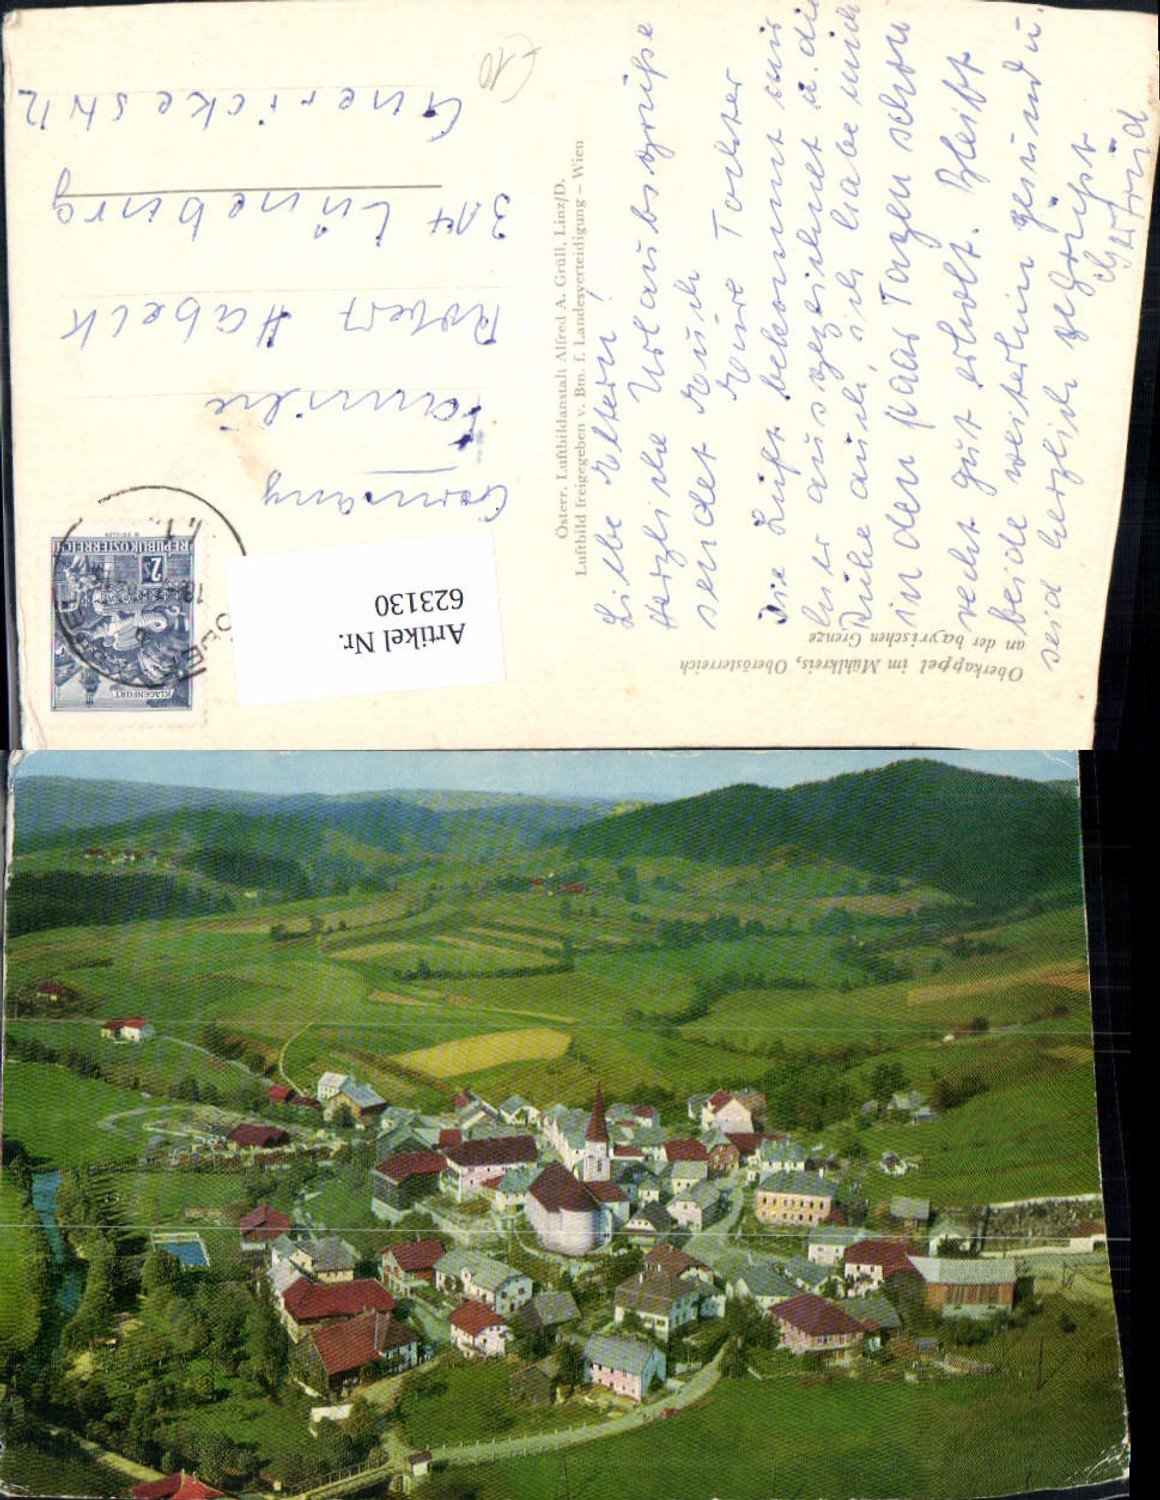 Oberkappel im Mühlkreis, Oberösterreich
an der bayrischen Grenze
Liebe Eltern!
Herzliche Urlaubsgrüße
sendet Euch
Eure Tochter
Die Luft bekommt mir
hier ausgezeichnet u. die
Ruhe auch, ich habe mich
in den paar Tagen schon
recht gut erholt. Bleibt
beide weiterhin gesund u.
seid herzlich gegrüßt
Gertrud
Österr. Luftbildanstalt Alfred A. Grüll, Linz/D.
Luftbild freigegeben v. Bm. f. Landesverteidigung – Wien
Artikel Nr.
623130
KLAGENFURT
2 S
REPUBLIK ÖSTERREICH
Germany
Familie
Robert Habeck
314 Lüneburg
Gnerickestr. 12